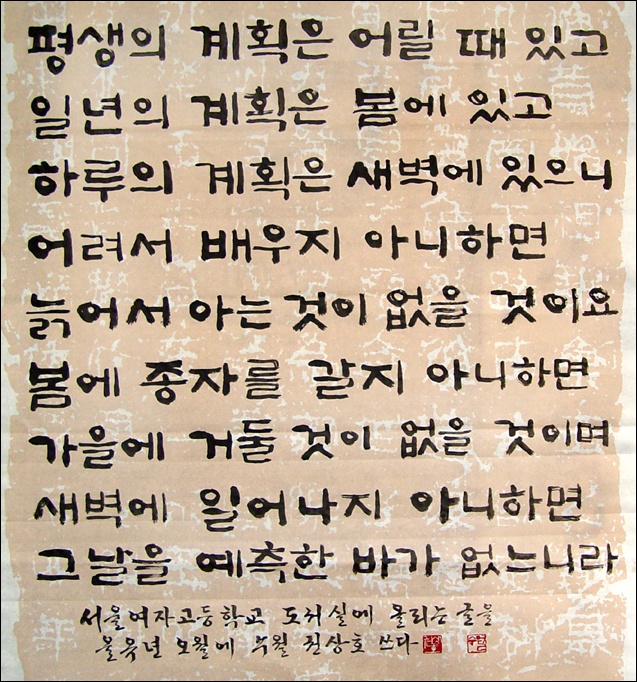 평생의 계획은 어릴 때 있고
일년의 계획은 봄에 있고
하루의 계획은 새벽에 있으니
어려서 배우지 아니하면
늙어서 아는 것이 없을 것이요
봄에 종자를 갈지 아니하면
가을에 거둘 것이 없을 것이며
새벽에 일어나지 아니하면
그날을 예측한 바가 없느니라
서울여자고등학교 도서실에 올리는 글을
을유년 오월에 권상호 쓰다